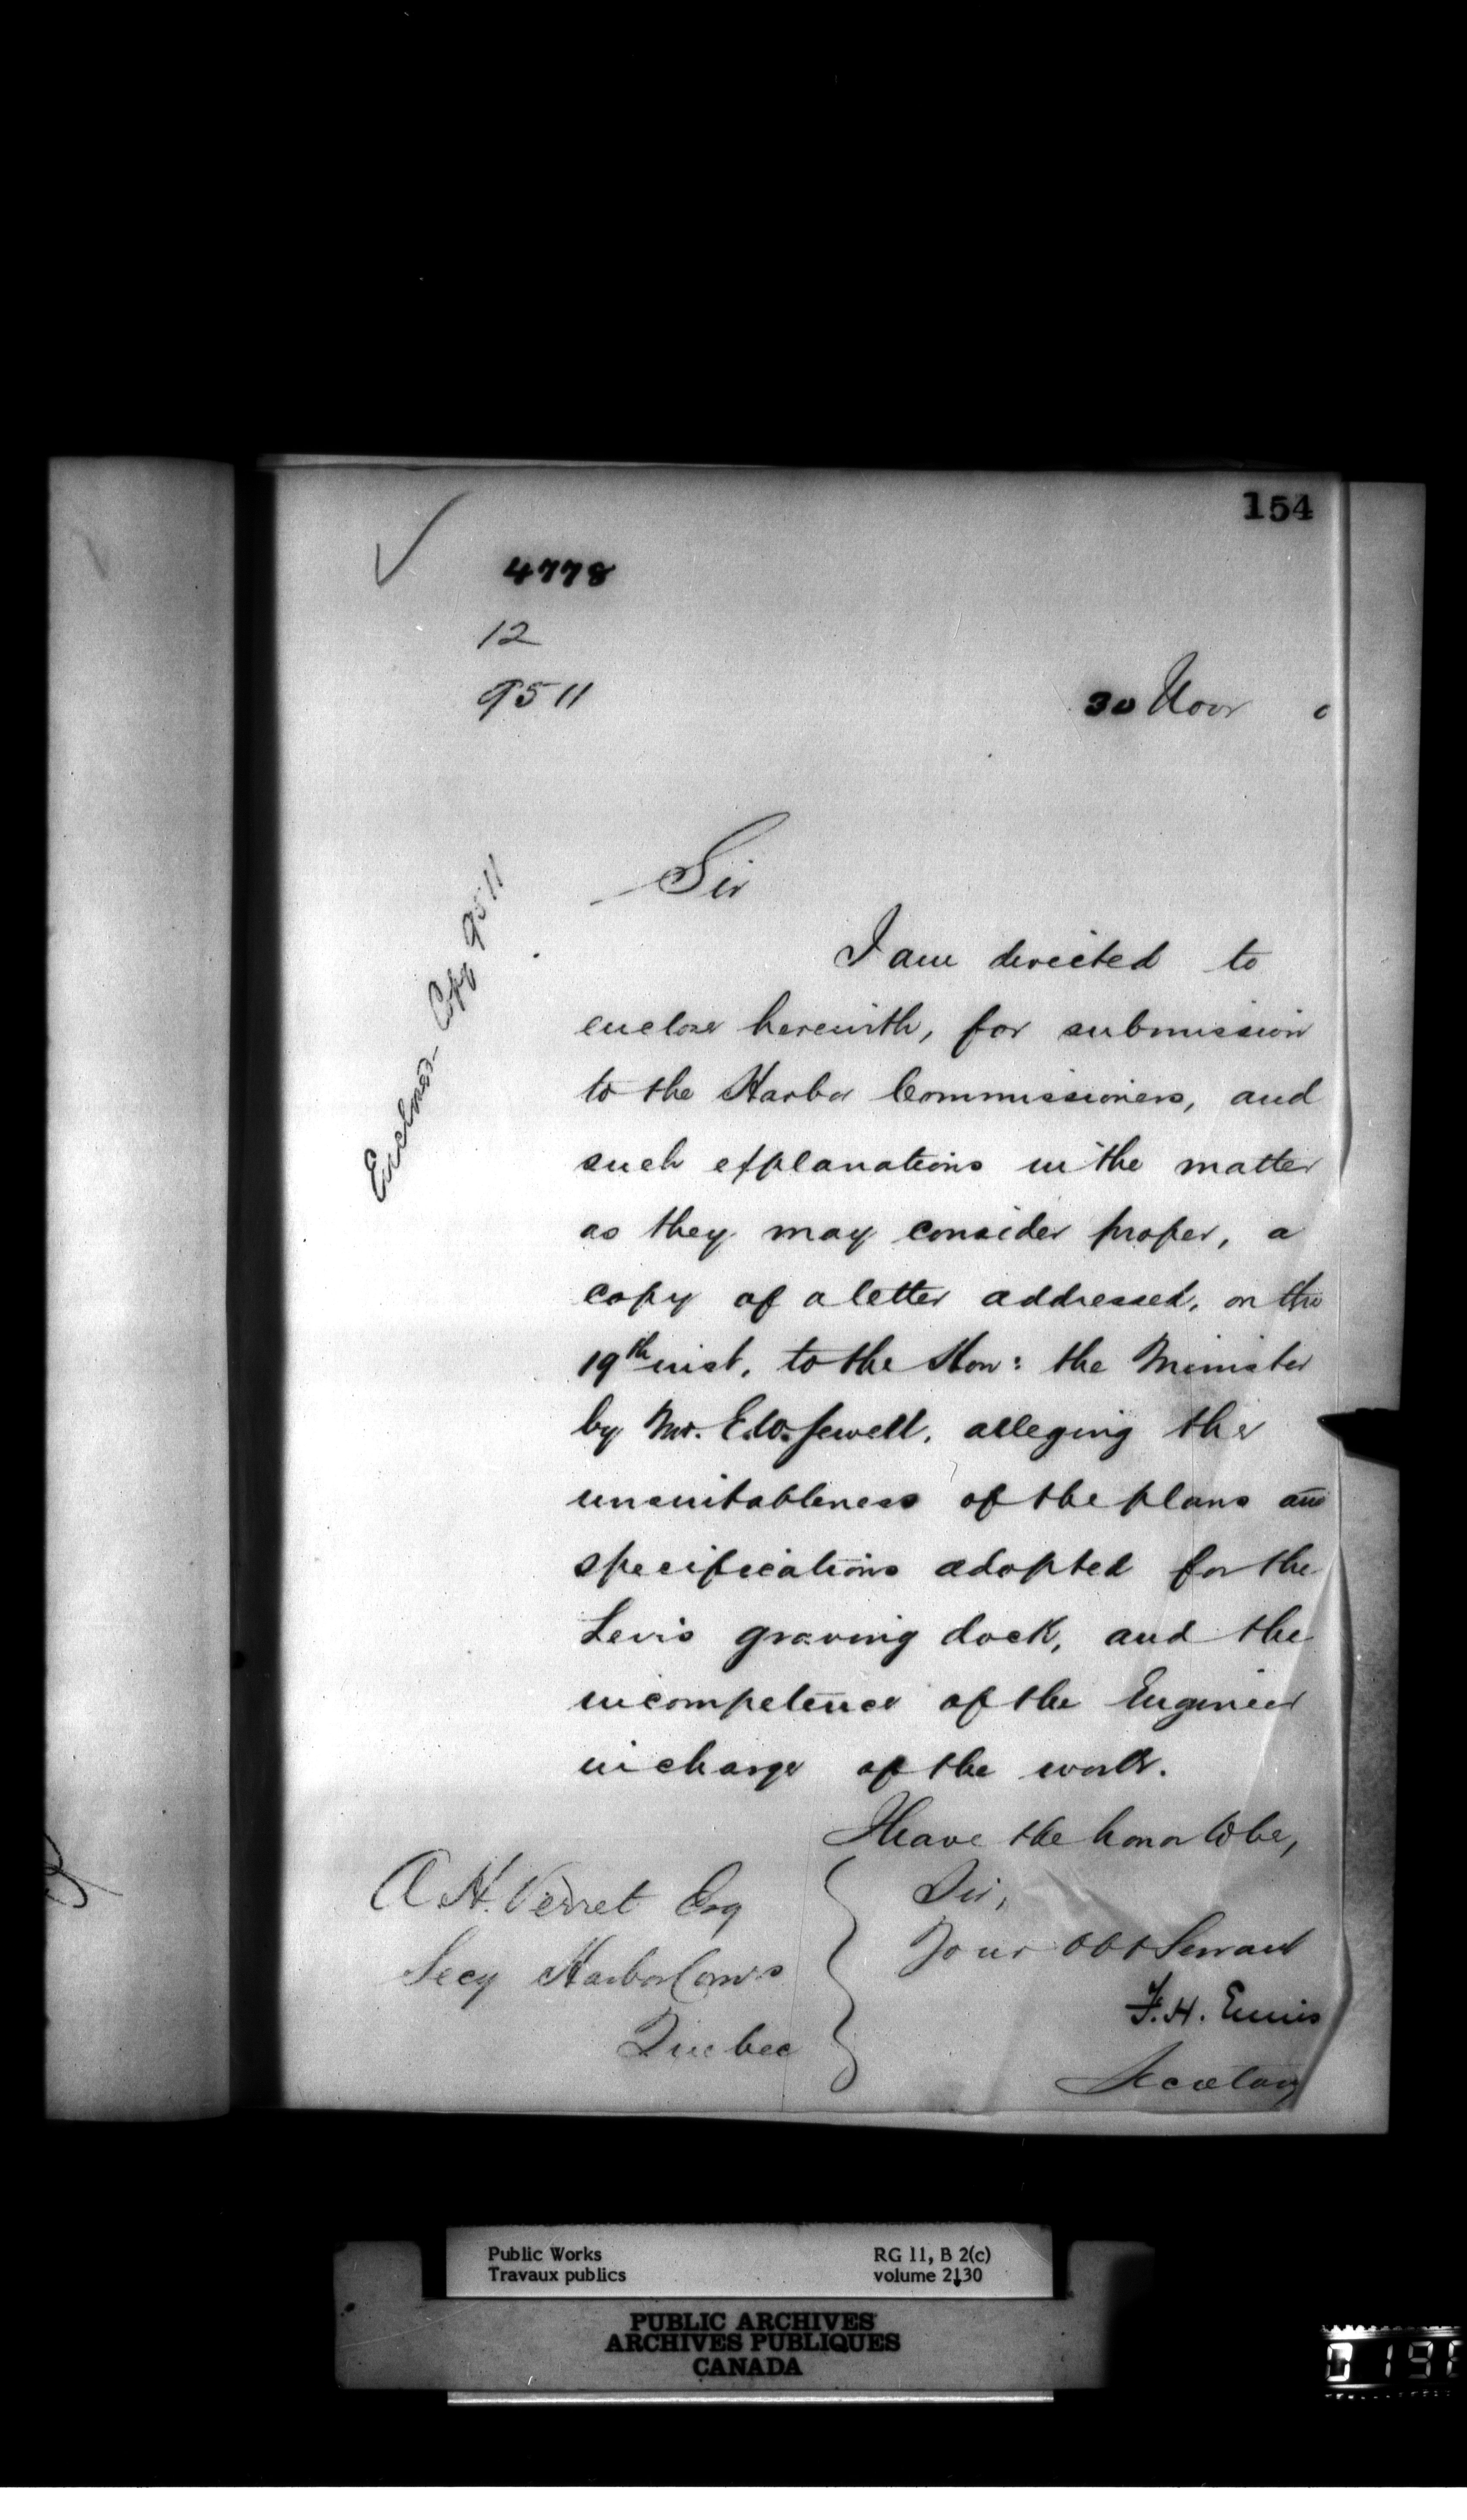 154
4778
12
9511
30 Novr 0
Enclosed Copy 9511
Sir
I am directed to
enclose herewith, for submission
to the Harbor Commissioners, and
such explanations in the matter
as they may consider proper, a
copy of a letter addressed, on the
19th inst, to the Hon: the Minister
by Mr. E.W. Sewell, alleging the
unsuitableness of the plans and
specifications adopted for the
Levis graving dock, and the
incompetence of the Engineer
in charge of the work.
I have the honor to be,
Sir,
Your Obt Servant
F.H. Ennis
Secretary
A H. Verret Esq
Secy Harbor Comrs
Quebec
Public Works
Travaux publics
RG 11, B 2(c)
volume 2130
PUBLIC ARCHIVES
ARCHIVES PUBLIQUES
CANADA